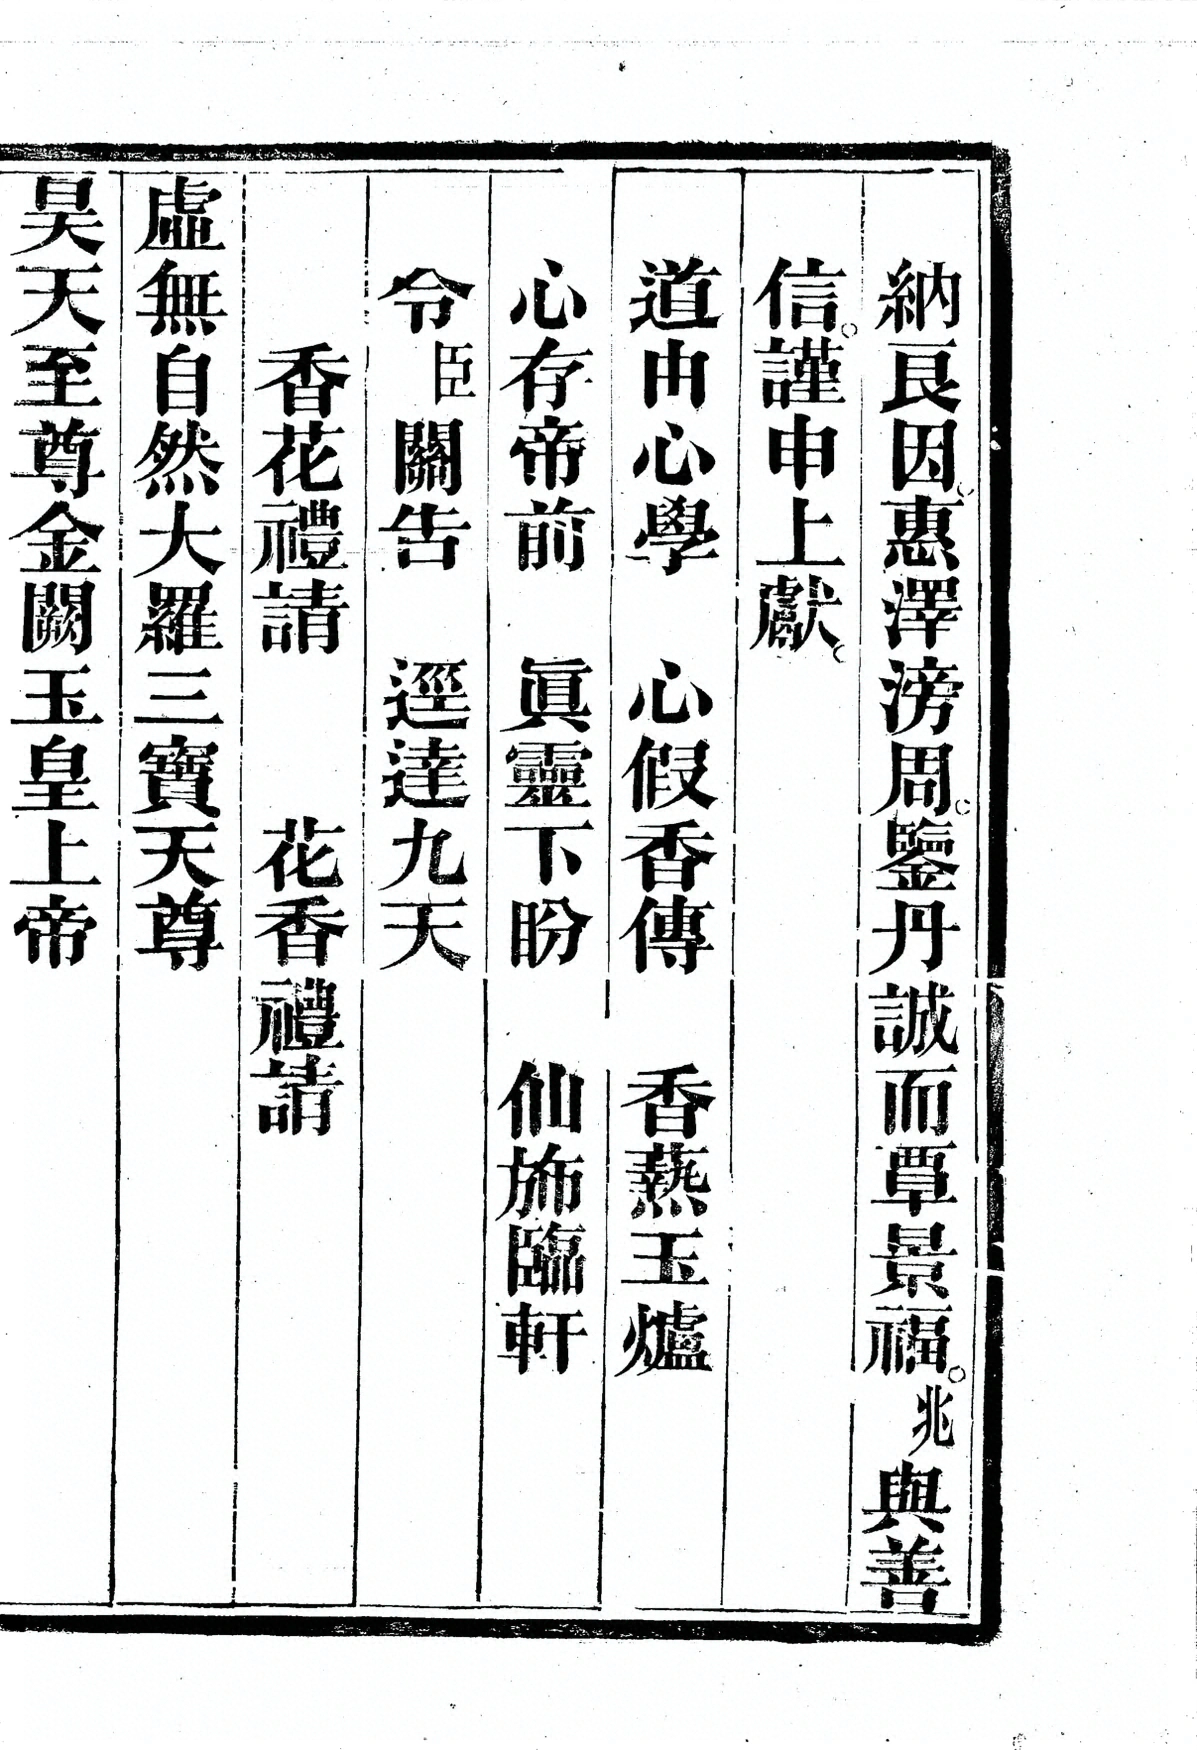 納良因。惠澤滂周。鑒丹誠而覃景福。兆與善
信。謹申上獻。
道由心學　心假香傳　香爇玉爐
心存帝前　眞靈下盼　仙斾臨軒
令臣關告　逕達九天
香花禮請　花香禮請
虛無自然大羅三寶天尊
昊天至尊金闕玉皇上帝